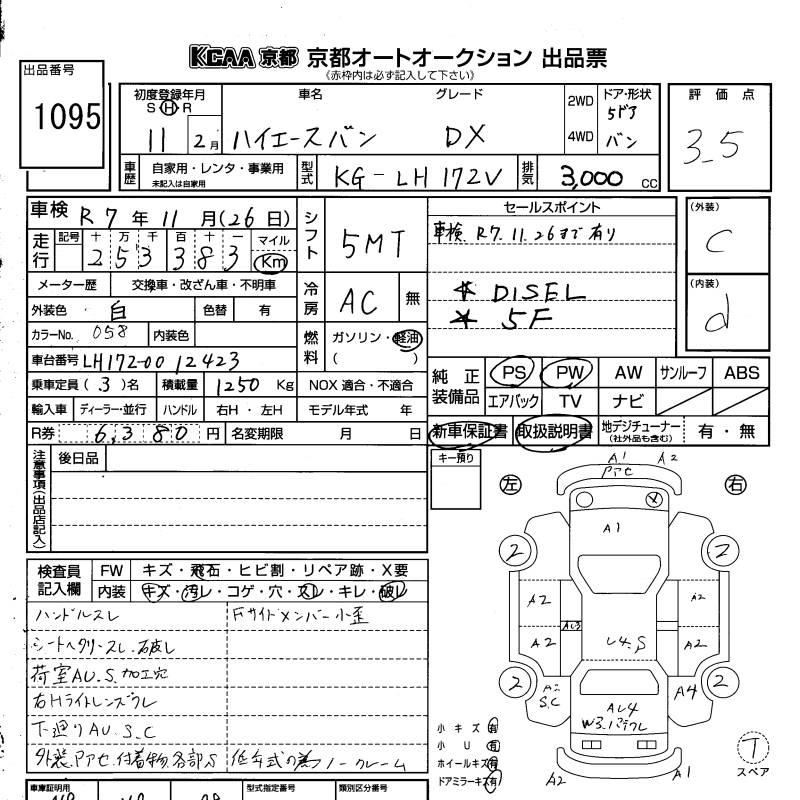 KCAA 京都 京都オートオークション 出品票
(赤枠内は必ず記入して下さい)
出品番号
1095
初度登録年月 車名 グレード 2WD ドア・形状
S H R 5ドア
11 2月 ハイエースバン DX 4WD バン
評価点
3.5
車歴 自家用・レンタ・事業用 型式 KG-LH172V 排気 3,000 CC
未記入は自家用
車検 R7年11月(26日) シフト 5MT
走行 記号 十 万 千 百 十 一 マイル
2 5 3 3 8 3 Km
メーター歴 交換車・改ざん車・不明車 冷房 AC 無
外装色 白 色替 有
カラーNo. 058 内装色 燃料 ガソリン・軽油
( )
車台番号 LH172-0012423
乗車定員 (3)名 積載量 1250 Kg NOX 適合・不適合
輸入車 ディーラー・並行 ハンドル 右H・左H モデル年式 年
R券 6,380 円 名変期限 月 日
セールスポイント
車検 R7.11.26まで有り
* DISEL
* 5F
(外装)
C
(内装)
d
純正装備品 PS PW AW サンルーフ ABS
エアバック TV ナビ
新車保証書 取扱説明書 地デジチューナー 有・無
(社外品も含む)
注意事項(出品店記入) 後日品
キー預り
検査員記入欄 FW キズ・飛石・ヒビ割・リペア跡・X要
内装 キズ・汚レ・コゲ・穴・スレ・キレ・破レ
ハンドルスレ Fサイドメンバー小歪
シートヘタリ・スレ・破レ
荷室AU.S.加工穴
右Hライトレンズワレ
下廻りAU.S.C
外装アアセ、付着物各部S 低年式の為ノークレーム
左 右
A1 A2
アアセ
X
A1
2 2
A2 A2
A2 A2
U4.S
2 2
S.C A4
W3
A2 A1
小キズ 有
小U 有
ホイールキズ 有
ドアミラーキズ 有
T
スペア
車庫証明用 型式指定番号 類別区分番号